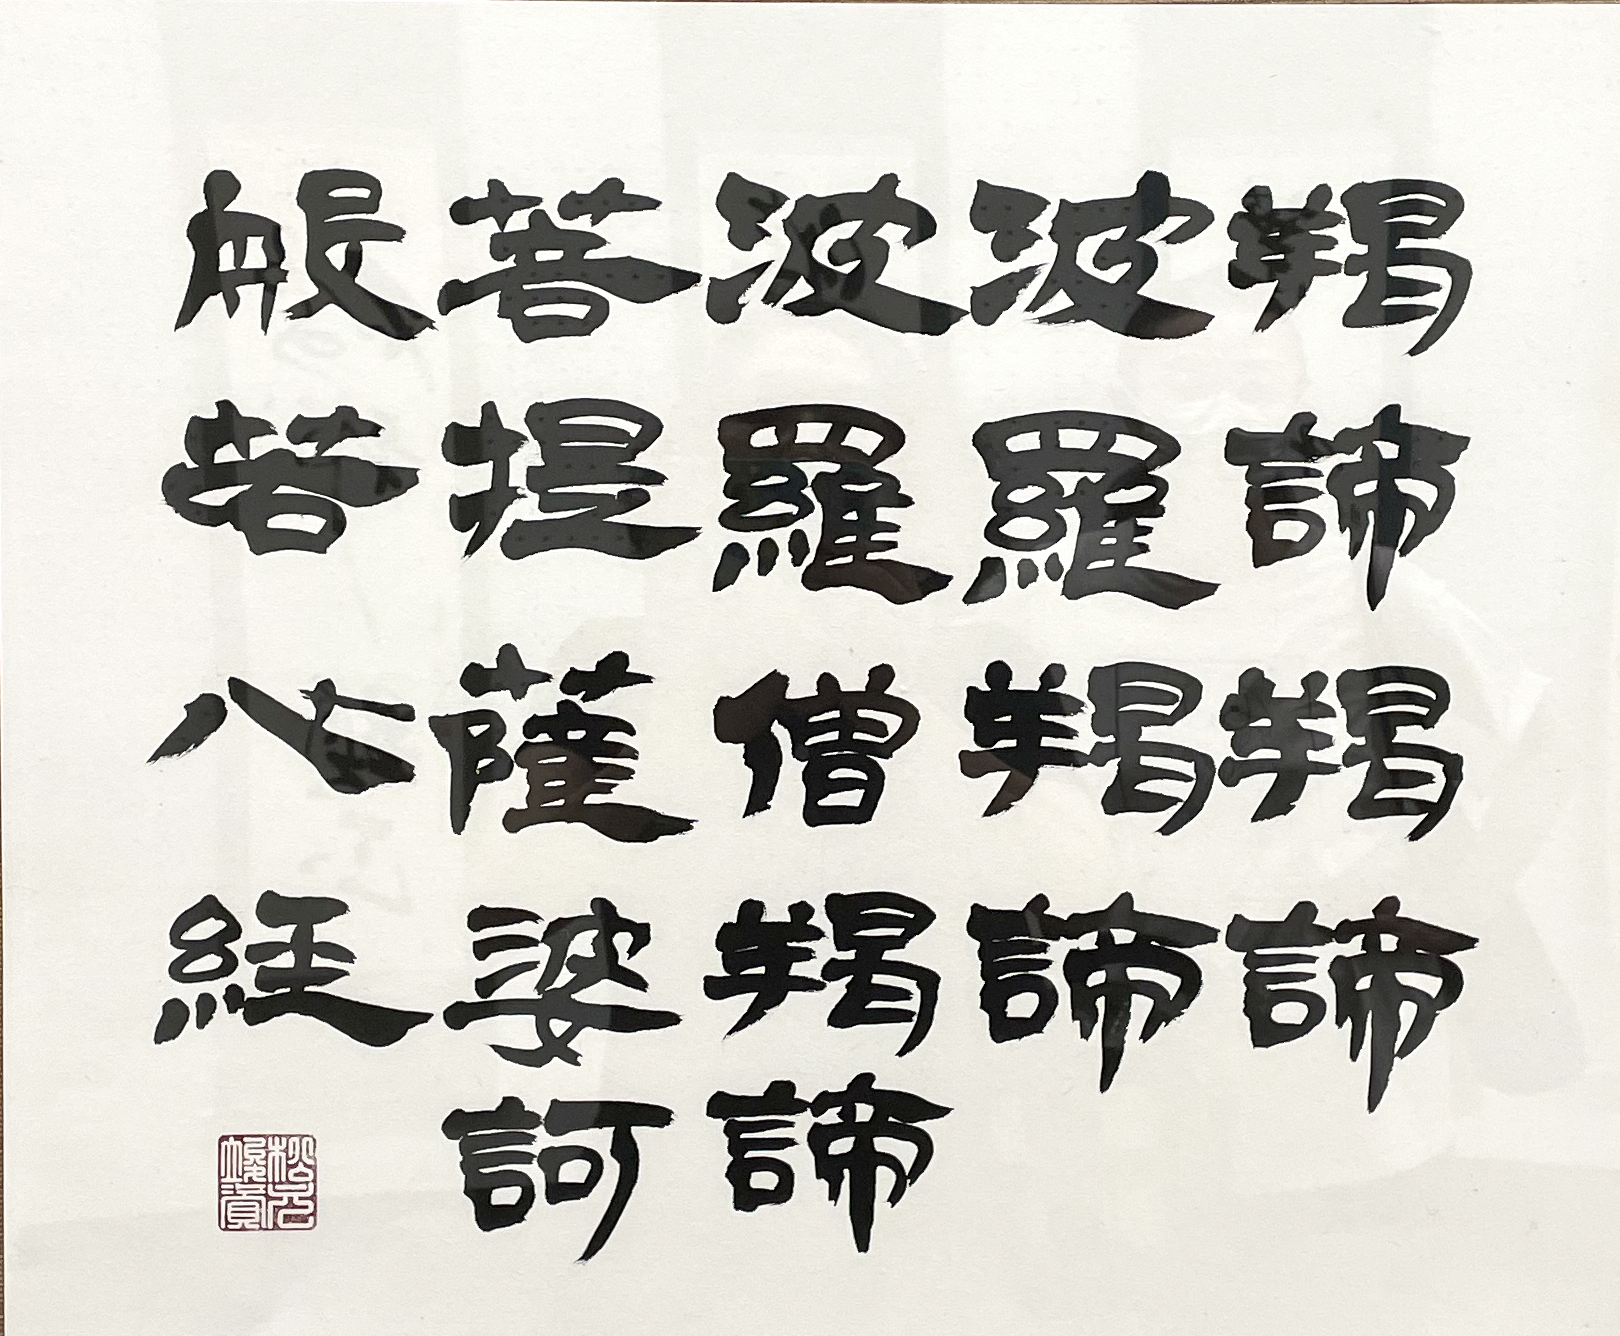 羯諦羯諦
波羅羯諦
波羅僧羯諦
菩提薩婆訶
般若心経